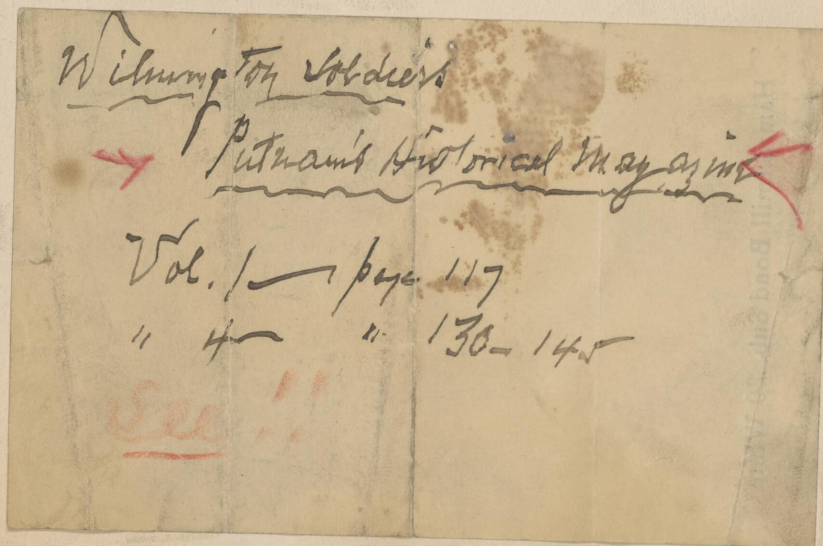 Wilmington Soldiers
Putnam's Historical Magazine
Vol. 1 — page 117
" 4 — " 130-145
See!!